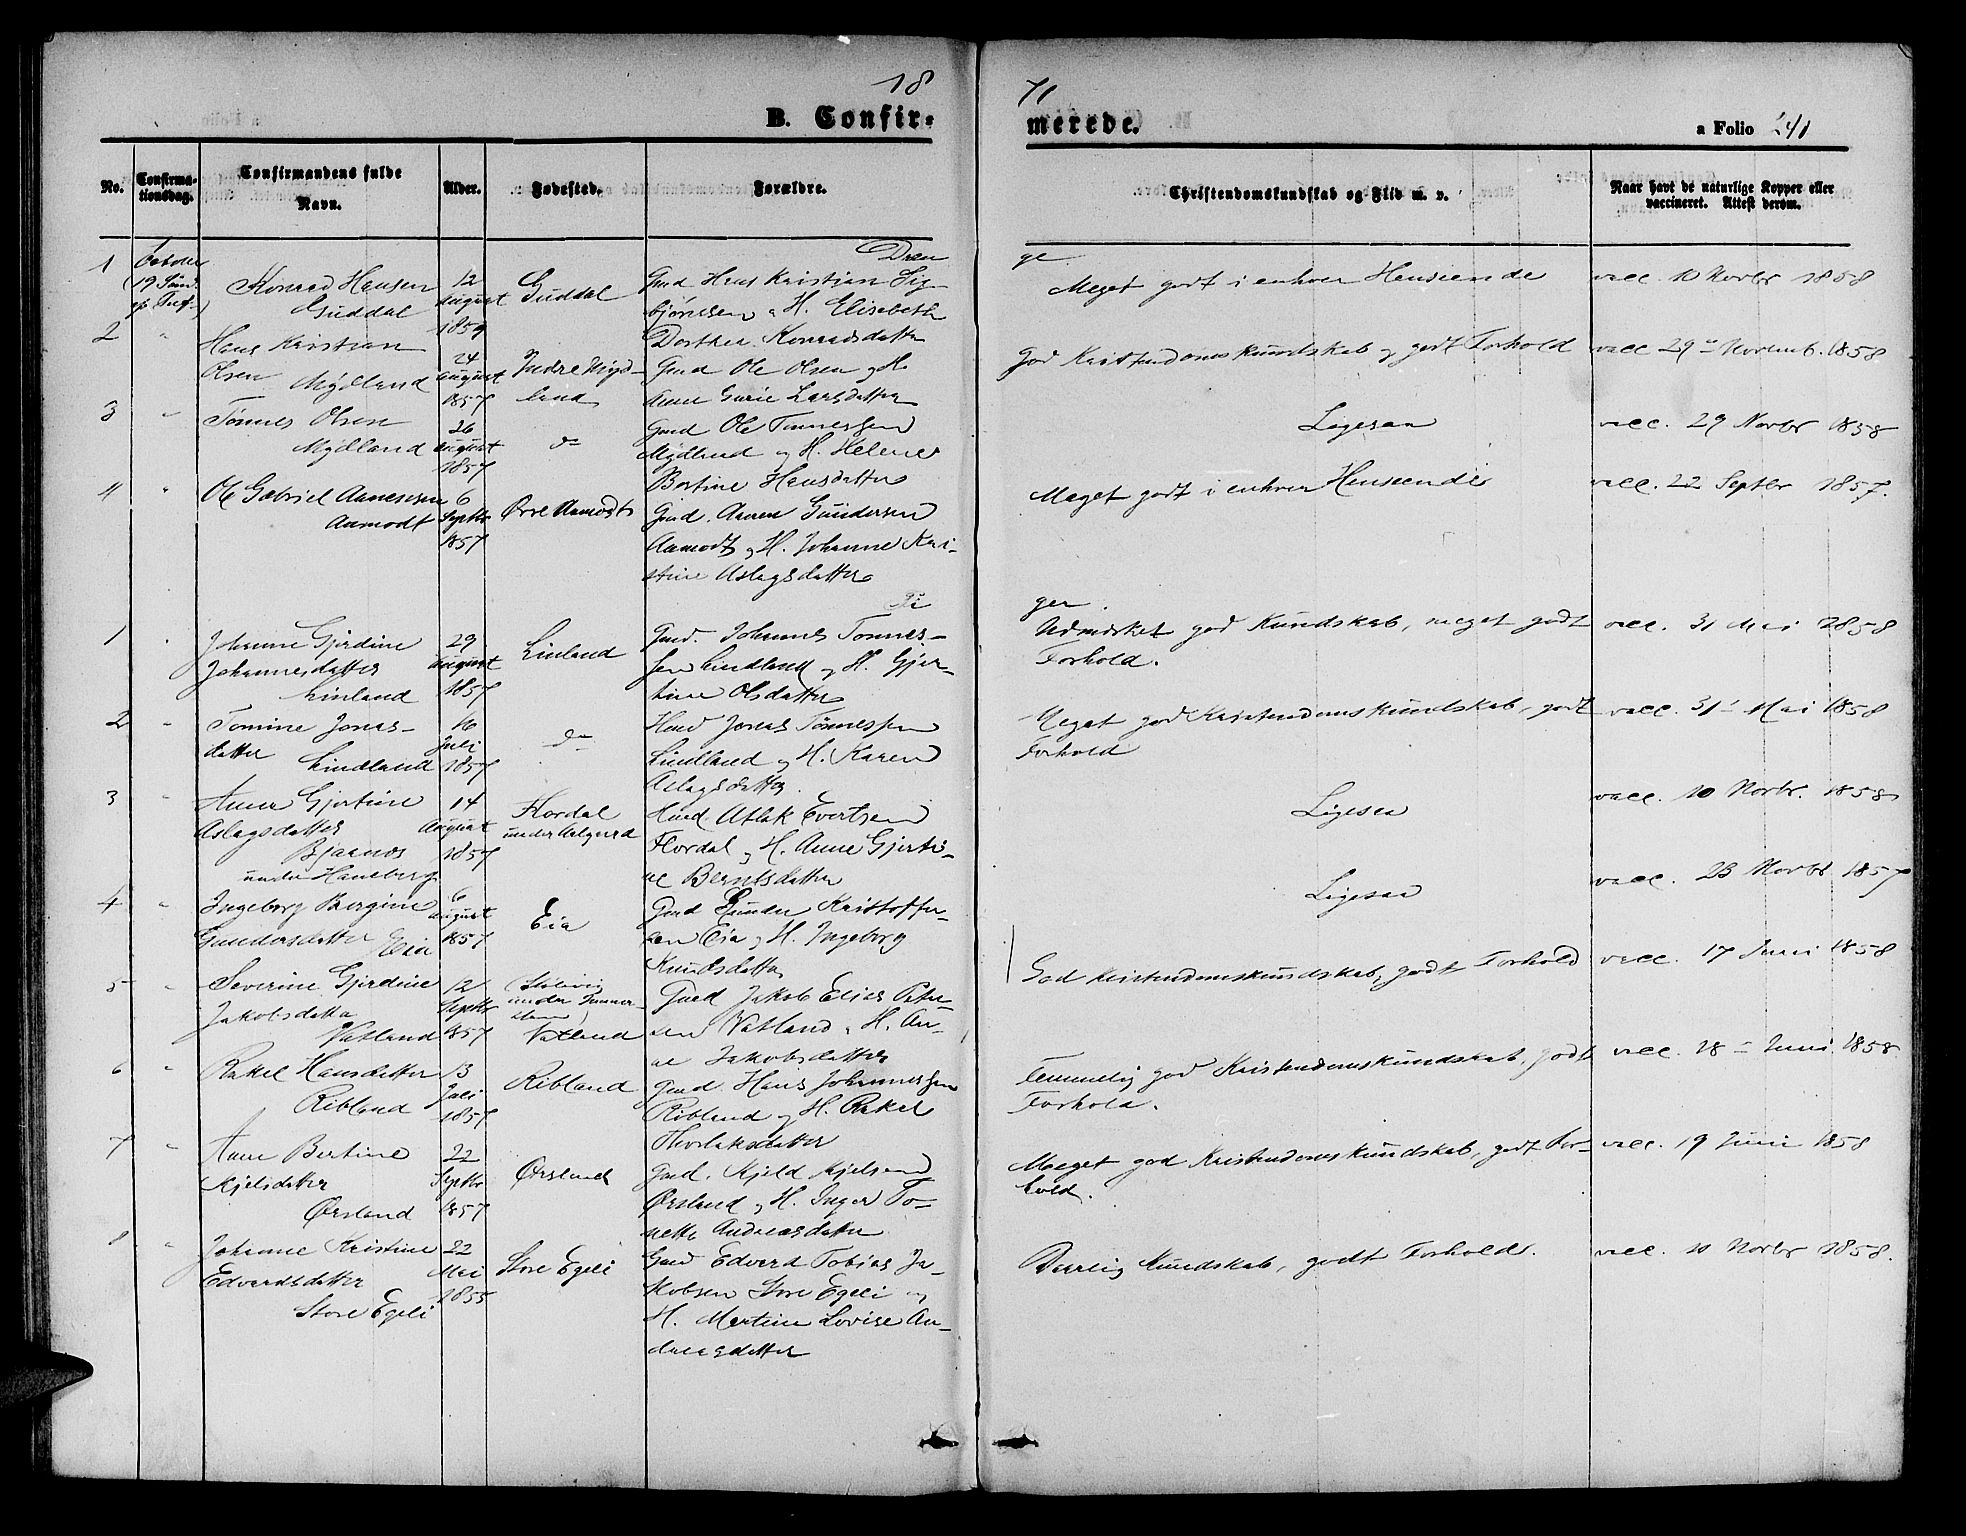 18
71
B. Confir-
merede.
a Folio 241
No.
Confirma-
tionsdag.
Confirmandens fulde
Navn.
Alder.
Fødested.
Forældre.
Christendomskundskab og Flid m. v.
Naar havt de naturlige Kopper eller
vaccineret. Attest derom.
Dren
ge
1
October
(19 Sønd.
Konrad Hansen
Guddal
12
August
1857
Guddal
Gmd Hans Kristian Sig-
bjørnssen og H. Elisabeth
Dorthea Konradsdatter
Meget godt i enhver Henseende
vacc. 10 Novbr 1858
2 "
Hans Kristian
Olsen
Mydland
24
August
1857
Indre Myd-
land
Gmd Ole Olsen og H.
Anne Gurie Larsdatter
God Kristendomskundskab og godt Forhold
vacc 29 Novemb. 1858
3 "
Tønnes Olsen
Mydland
26
August
1857
do
Gmd Ole Tønnessen
Mydland og H. Helene
Bertine Hansdatter
Ligesaa
vacc. 29 Novbr 1858
4 "
Ole Gabriel Aanensen
Aamodt
6
Septbr
1857
Øvre Aamodt
Gmd. Aanen Gundersen
Aamodt og H. Johanne Kri-
stine Aslagsdatter
Meget godt i enhver Henseende
vacc. 22 Septbr 1857.
Pi
ger.
1 "
Johanne Gjerdine
Johannesdatter
Linland
29
August
1857
Linland
Gmd. Johannes Tønnes-
sen Lindland og H. Gjer-
tine Olsdatter
Udmærket god Kundskab, meget godt
Forhold.
vacc. 31 Mai 1858
2 "
Tomine Jonas-
datter
Lindland
16
Juli
1857
do
Hmd Jonas Tønnessen
Lindland og H. Karen
Aslagsdatter.
Meget god Kristendomskundskab, godt
Forhold
vacc. 31 Mai 1858
3 "
Anne Gjertine
Aslagsdatter
Bjaanes
under Haneberg
14
August
1857
Flordal
under Aalgaard
Hmd Atlak Evertsen
Flordal og H. Anne Gjerti-
ne Berntsdatter
Ligesaa
vacc. 10 Novbr. 1858
4 "
Ingeborg Bergine
Gundersdatter Eia
6
August
1857
Eia
Gmd Gunder Kristoffer-
sen Eia og H. Ingeborg
Knudsdatter
Ligesaa
vacc. 23 Novbr 1857
5 "
Severine Gjerdine
Jakobsdatter
Vatland
12
Septbr
1857
Vatland
Gmd Jakob Elias Peter-
sen Vatland og H. An-
ne Jakobsdatter
God Kristendomskundskab, godt Forhold
vacc. 17 Juni 1858
6 "
Rakel Hansdatter
Ribland
13
Juli
1857
Ribland
Gmd Hans Johannessen
Ribland og H. Rakel
Thorlaksdatter
Temmelig god Kristendomskundskab, godt
Forhold.
vacc. 18 Juni 1858
7 "
Anne Bertine
Kjelsdatter
Ørsland
22
Septbr
1857
Ørsland
Gmd. Kjeld Kjelsen
Ørsland og H. Inger To-
nette Andreasdatter
Meget god Kristendomskundskab, godt For-
hold.
vacc. 19 Juni 1858
8 "
Johanne Kristine
Edvardsdatter
Store Egeli
22
Mai
1855
Store Egeli
Gmd Edvard Tobias Ja-
kobsen Store Egeli og
H. Martine Lovise An-
dreasdatter
Daarlig Kundskab, godt Forhold.
vacc. 10 Novbr 1858.